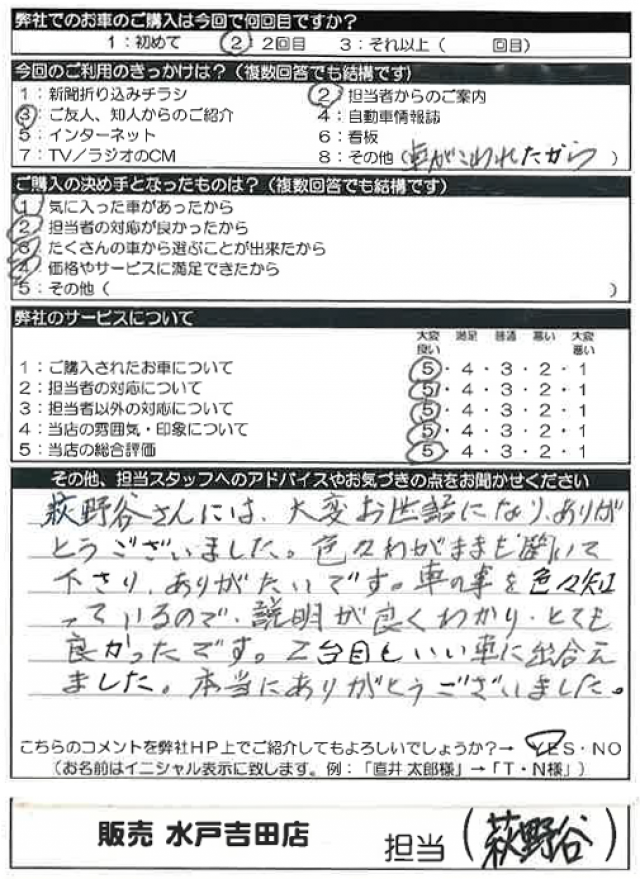 弊社でのお車のご購入は今回で何回目ですか?
1:初めて 2:2回目 3:それ以上( 回目)
今回のご利用のきっかけは?(複数回答でも結構です)
1:新聞折り込みチラシ 2:担当者からのご案内
3:ご友人、知人からのご紹介 4:自動車情報誌
5:インターネット 6:看板
7:TV/ラジオのCM 8:その他(車がこわれたから)
ご購入の決め手となったものは?(複数回答でも結構です)
1:気に入った車があったから
2:担当者の対応が良かったから
3:たくさんの車から選ぶことが出来たから
4:価格やサービスに満足できたから
5:その他( )
弊社のサービスについて
大変良い 満足 普通 悪い 大変悪い
1:ご購入されたお車について 5・4・3・2・1
2:担当者の対応について 5・4・3・2・1
3:担当者以外の対応について 5・4・3・2・1
4:当店の雰囲気・印象について 5・4・3・2・1
5:当店の総合評価 5・4・3・2・1
その他、担当スタッフへのアドバイスやお気づきの点をお聞かせください
萩野谷さんには、大変お世話になり、ありが
とうございました。色々わがままも聞いて
下さり、ありがたいです。車の事を色々知
っているので、説明が良くわかり、とても
良かったです。2台目もいい車に出合え
ました。本当にありがとうございました。
こちらのコメントを弊社HP上でご紹介してもよろしいでしょうか?→ YES・NO
(お名前はイニシャル表示に致します。例:「直井 太郎様」→「T・N様」)
販売 水戸吉田店 担当(萩野谷)